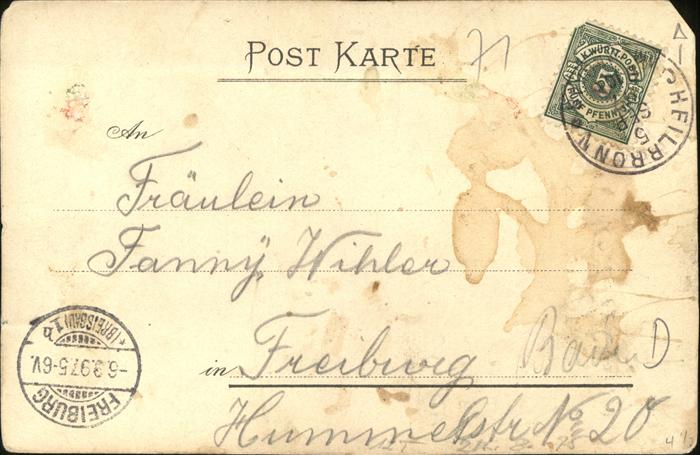 POST KARTE
71
K. WÜRTT. POST
FÜNF PFENNIG
5
HEILBRONN
5 S
An
Fräulein
Fanny Wihler
in Freiburg Baden D
Hummelstr No 20
FREIBURG
-6.3.97.5-6V.
*(BREISGAU)1.b
4